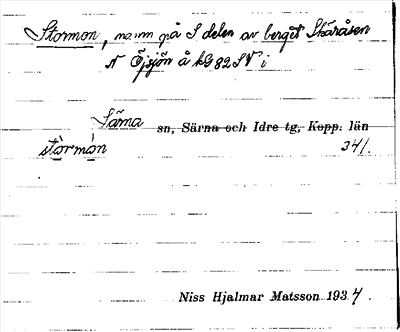 Stormon, namn på S delen av berget Skäråsen
N Öjsjön å kG 82 SV i
Särna sn, Särna och Idre tg, Kopp. län
stòrmòn 341.
Niss Hjalmar Matsson 1934.